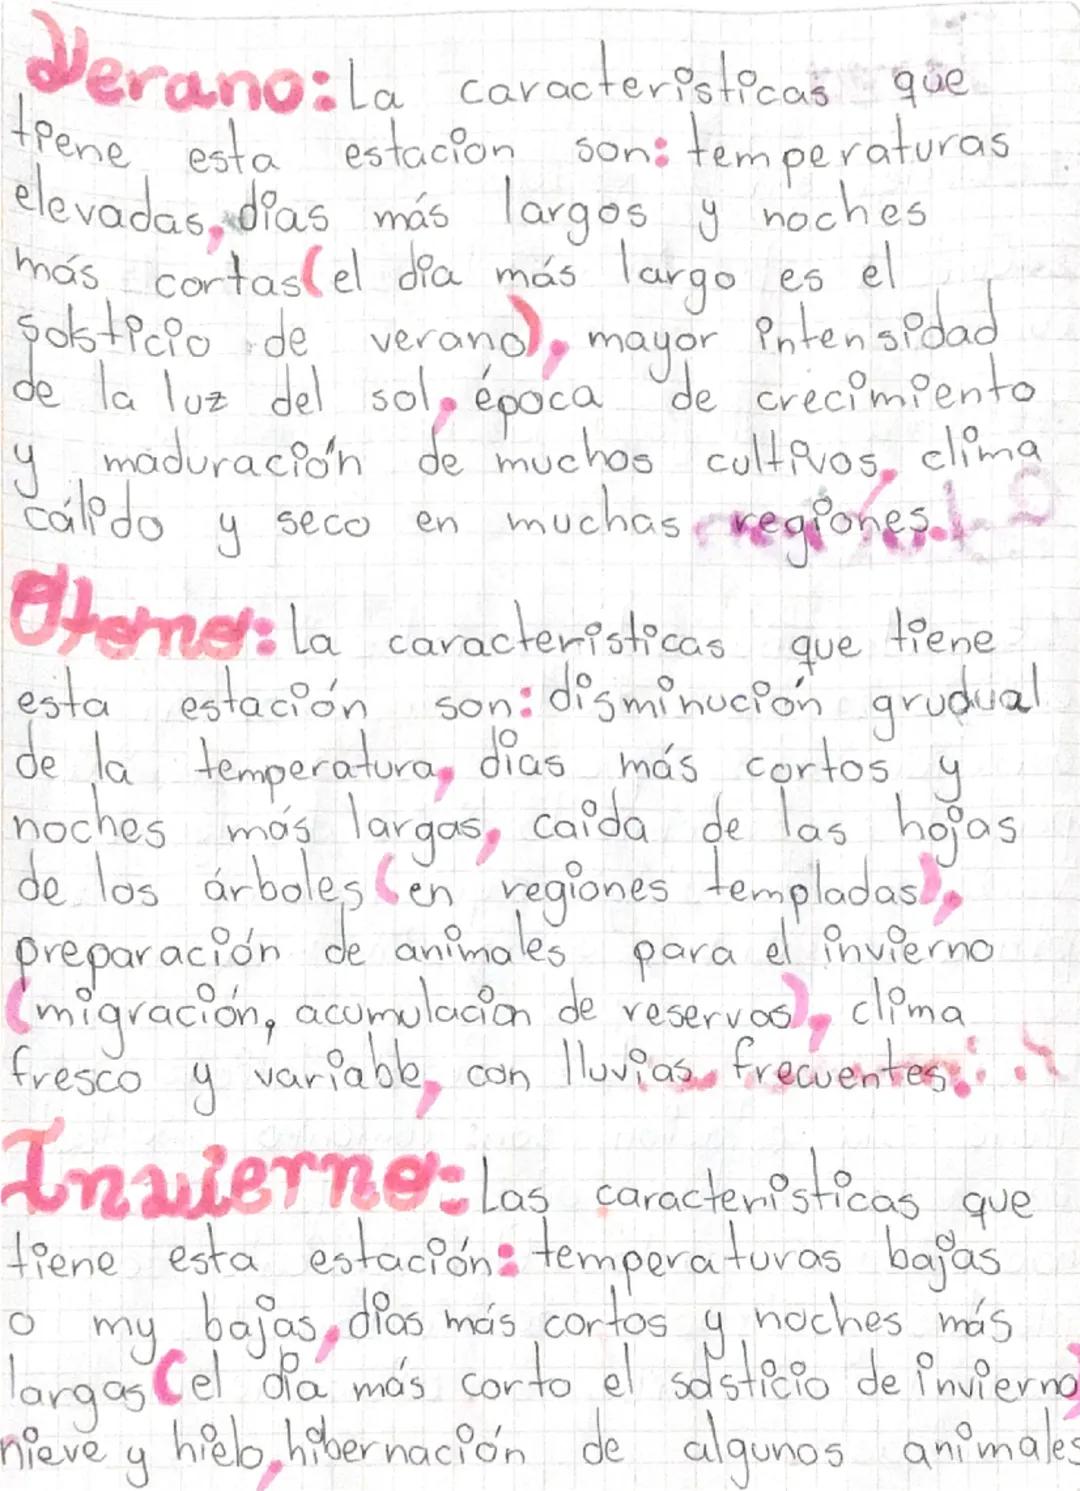 Verano: La características que
tiene esta estacion son: temperaturas
elevadas, días más largos y noches
más cortas (el día más largo es el
solsticio de verano), mayor intensidad
de la luz del sol, época de crecimiento
y maduración de muchos cultivos, clima
cálido y seco en muchas regiones.
Otoño: La características que tiene
esta estación son: disminución grudual
de la temperatura, días más cortos y
noches más largas, caida de las hojas
de los árboles (en regiones templadas),
preparación de animales para el invierno
(migración, acumulación de reservas), clima
fresco y variable, con lluvias frecuentes.
Invierno: Las características que
tiene esta estación: temperaturas bajas
o my bajas, días más cortos y noches más
largas (el día más corto el solsticio de invierno)
nieve y hielo, hibernación de algunos animales